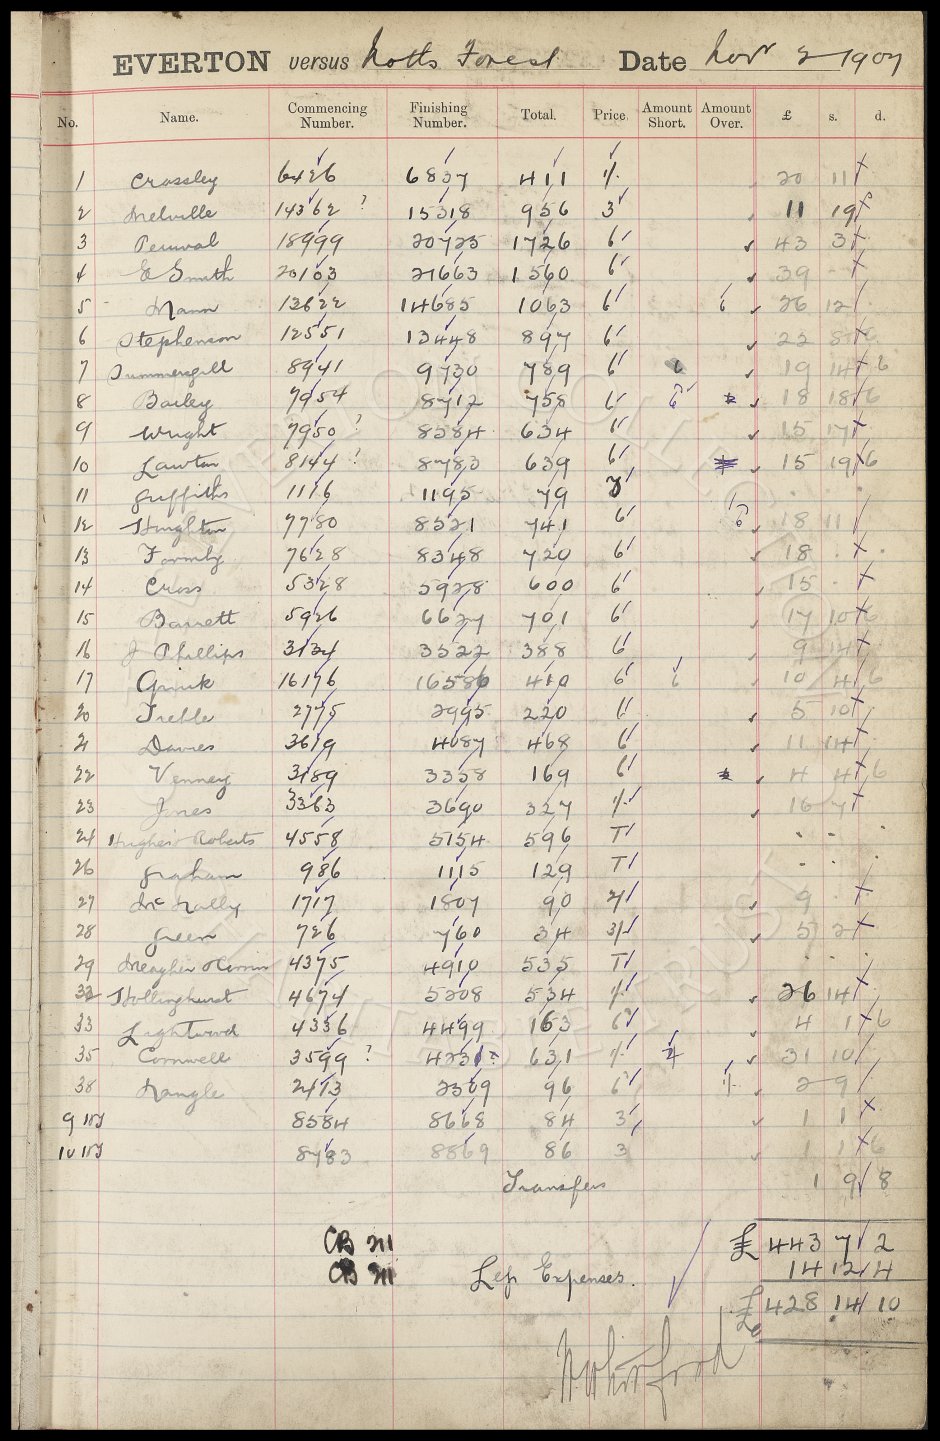 EVERTON versus Notts Forest Date Nov 2 1907
No. Name. Commencing Number. Finishing Number. Total. Price. Amount Short. Amount Over. £ s. d.
1 Crossley 6426 6837 411 1/- 20 11
2 Melville 14362 ? 15318 956 3 11 19
3 Percival 18999 20725 1726 6 43 3
4 E Smith 20103 21663 1560 6 39 -
5 Mann 13622 14685 1063 6 6 26 12
6 Stephenson 12551 13448 897 6 22 8 6
7 Summersgill 8941 9730 789 6 19 14 6
8 Bailey 7954 8712 758 6 6 18 18 6
9 Wright 7950 ? 8584 634 6 15 17
10 Lawton 8144 ? 8783 639 6 15 19 6
11 Griffiths 1116 1195 79
12 Houghton 7780 8521 741 6 6 18 11
13 Formby 7628 8348 720 6 18
14 Cross 5328 5928 600 6 15
15 Barrett 5926 6627 701 6 17 10 6
16 J Phillips 3134 3522 388 6 9 14
17 16176 16586 410 6 6 10 4 6
20 Treble 2775 2995 220 6 5 10
21 Davies 3619 4087 468 6 11 14
22 Venney 3189 3358 169 6 4 4 6
23 Jones 3363 3690 327 1/- 16 7
24 Hughes & Roberts 4558 5154 596 T
26 Graham 986 1115 129 T
27 McNally 1717 1807 90 2/- 9
28 Green 726 760 34 3/- 5 2
29 Meagher 4375 4910 535 T
32 Hollinghurst 4674 5208 534 1/- 26 14
33 Lightwood 4336 4499 163 6 4 1 6
35 Cornwell 3599 ? 4231 631 1/- 31 10
38 Nangle 2413 2509 96 6 1/- 2 9
9 8584 8668 84 3 1 1
10 8783 8869 86 3 1 1 6
Transfers 1 9 8
£ 443 7 2
CB 211
CB 211 Less Expenses. 14 12 4
£ 428 14 10